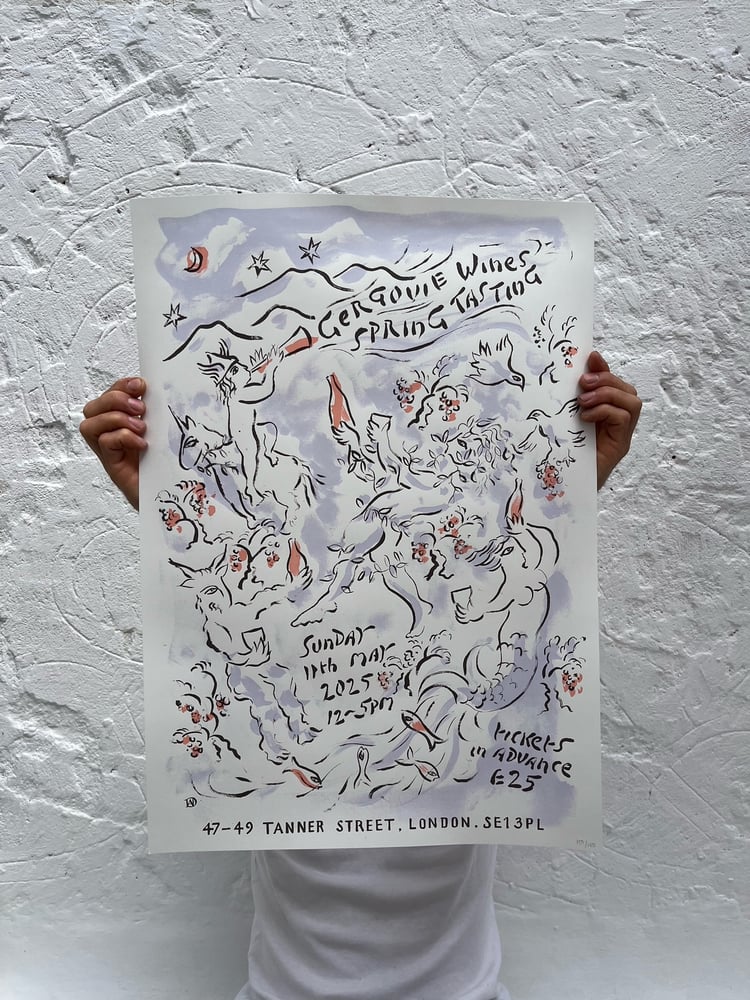 GERGOVIE Wines
SPRING TASTING
SUNDAY
11th MAY
2025
12-5PM
tickets
in ADVANCE
£25
47-49 TANNER STREET, LONDON. SE13PL